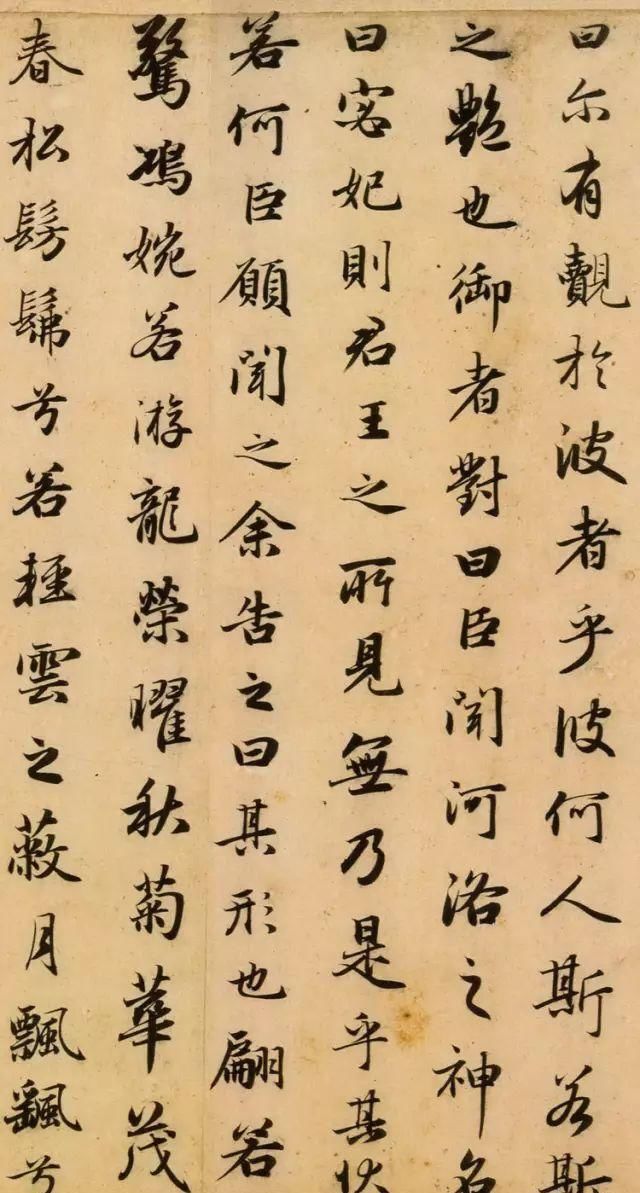 曰尔有觌於波者乎彼何人斯若斯
之豔也御者對曰臣聞河洛之神名
曰宓妃則君王之所見無乃是乎其狀
若何臣願聞之余告之曰其形也翩若
驚鴻婉若游龍榮曜秋菊華茂
春松髣髴兮若輕雲之蔽月飄颻兮